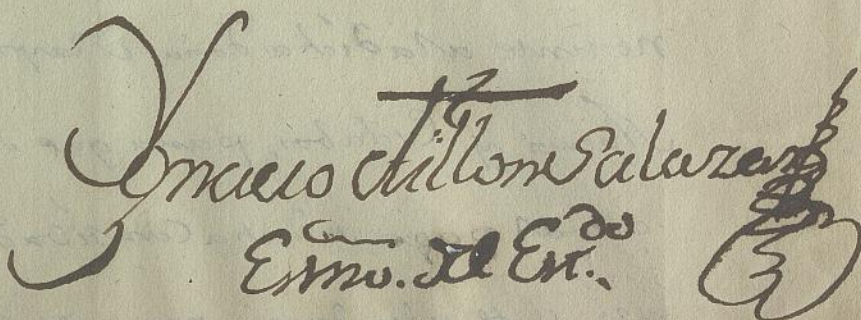 Ygnacio Aillon Salazar
Essno. del Est.do